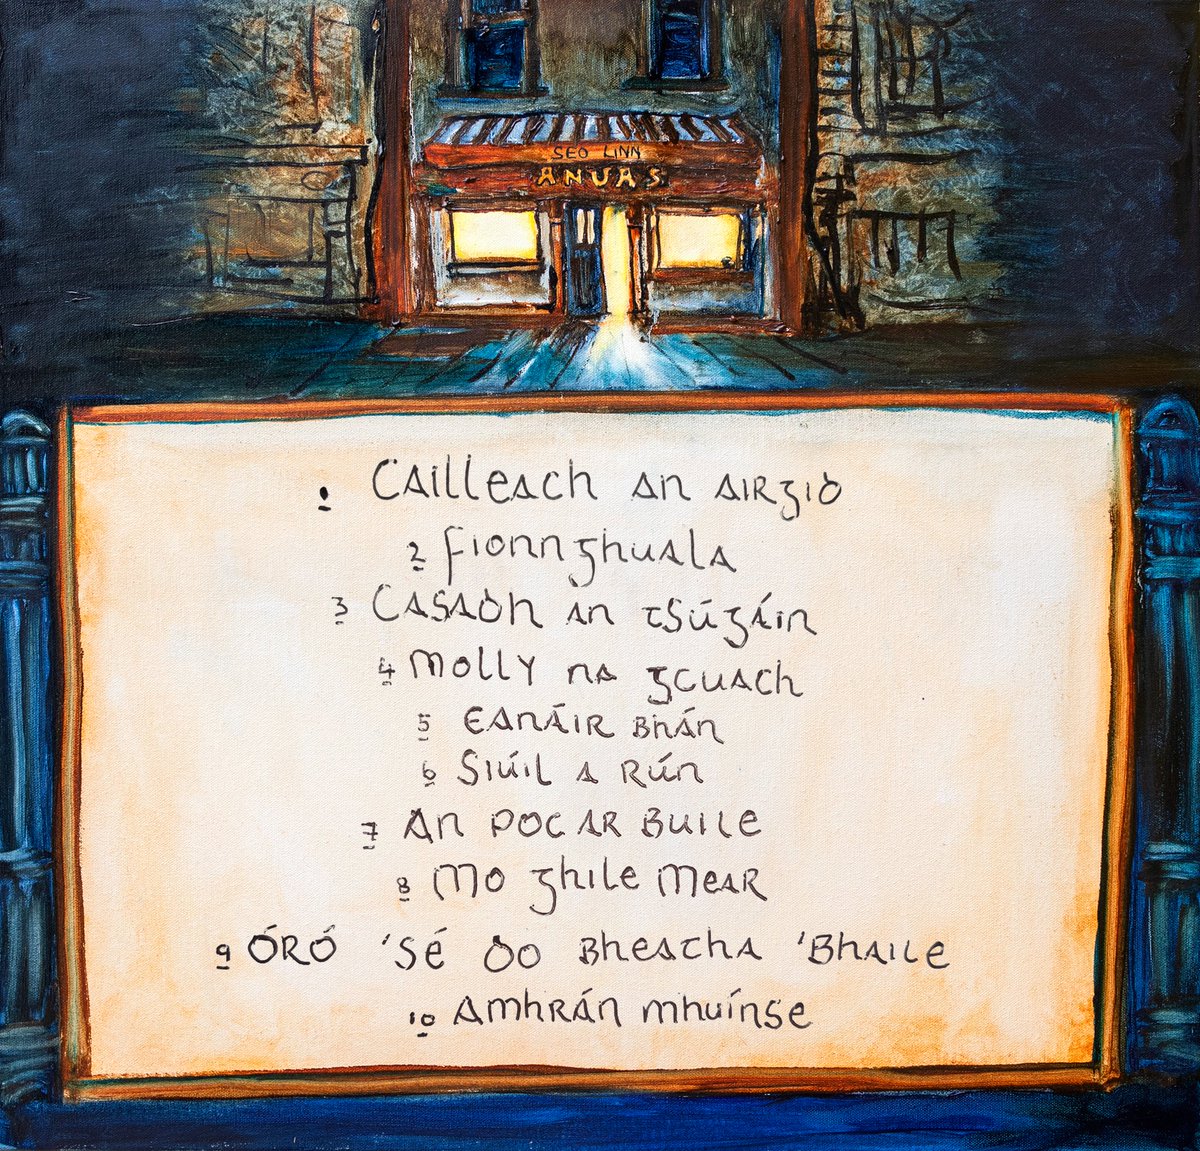 SEO LINN
ANUAS
1 Cailleach an Airgid
2 Fionnghuala
3 Casadh an tSúgáin
4 Molly na gcuach
5 Eanáir Bhán
6 Siúil a Rún
7 An Poc ar Buile
8 Mo ghile Mear
9 Óró 'Sé do Bheatha 'Bhaile
10 Amhrán Mhuínse